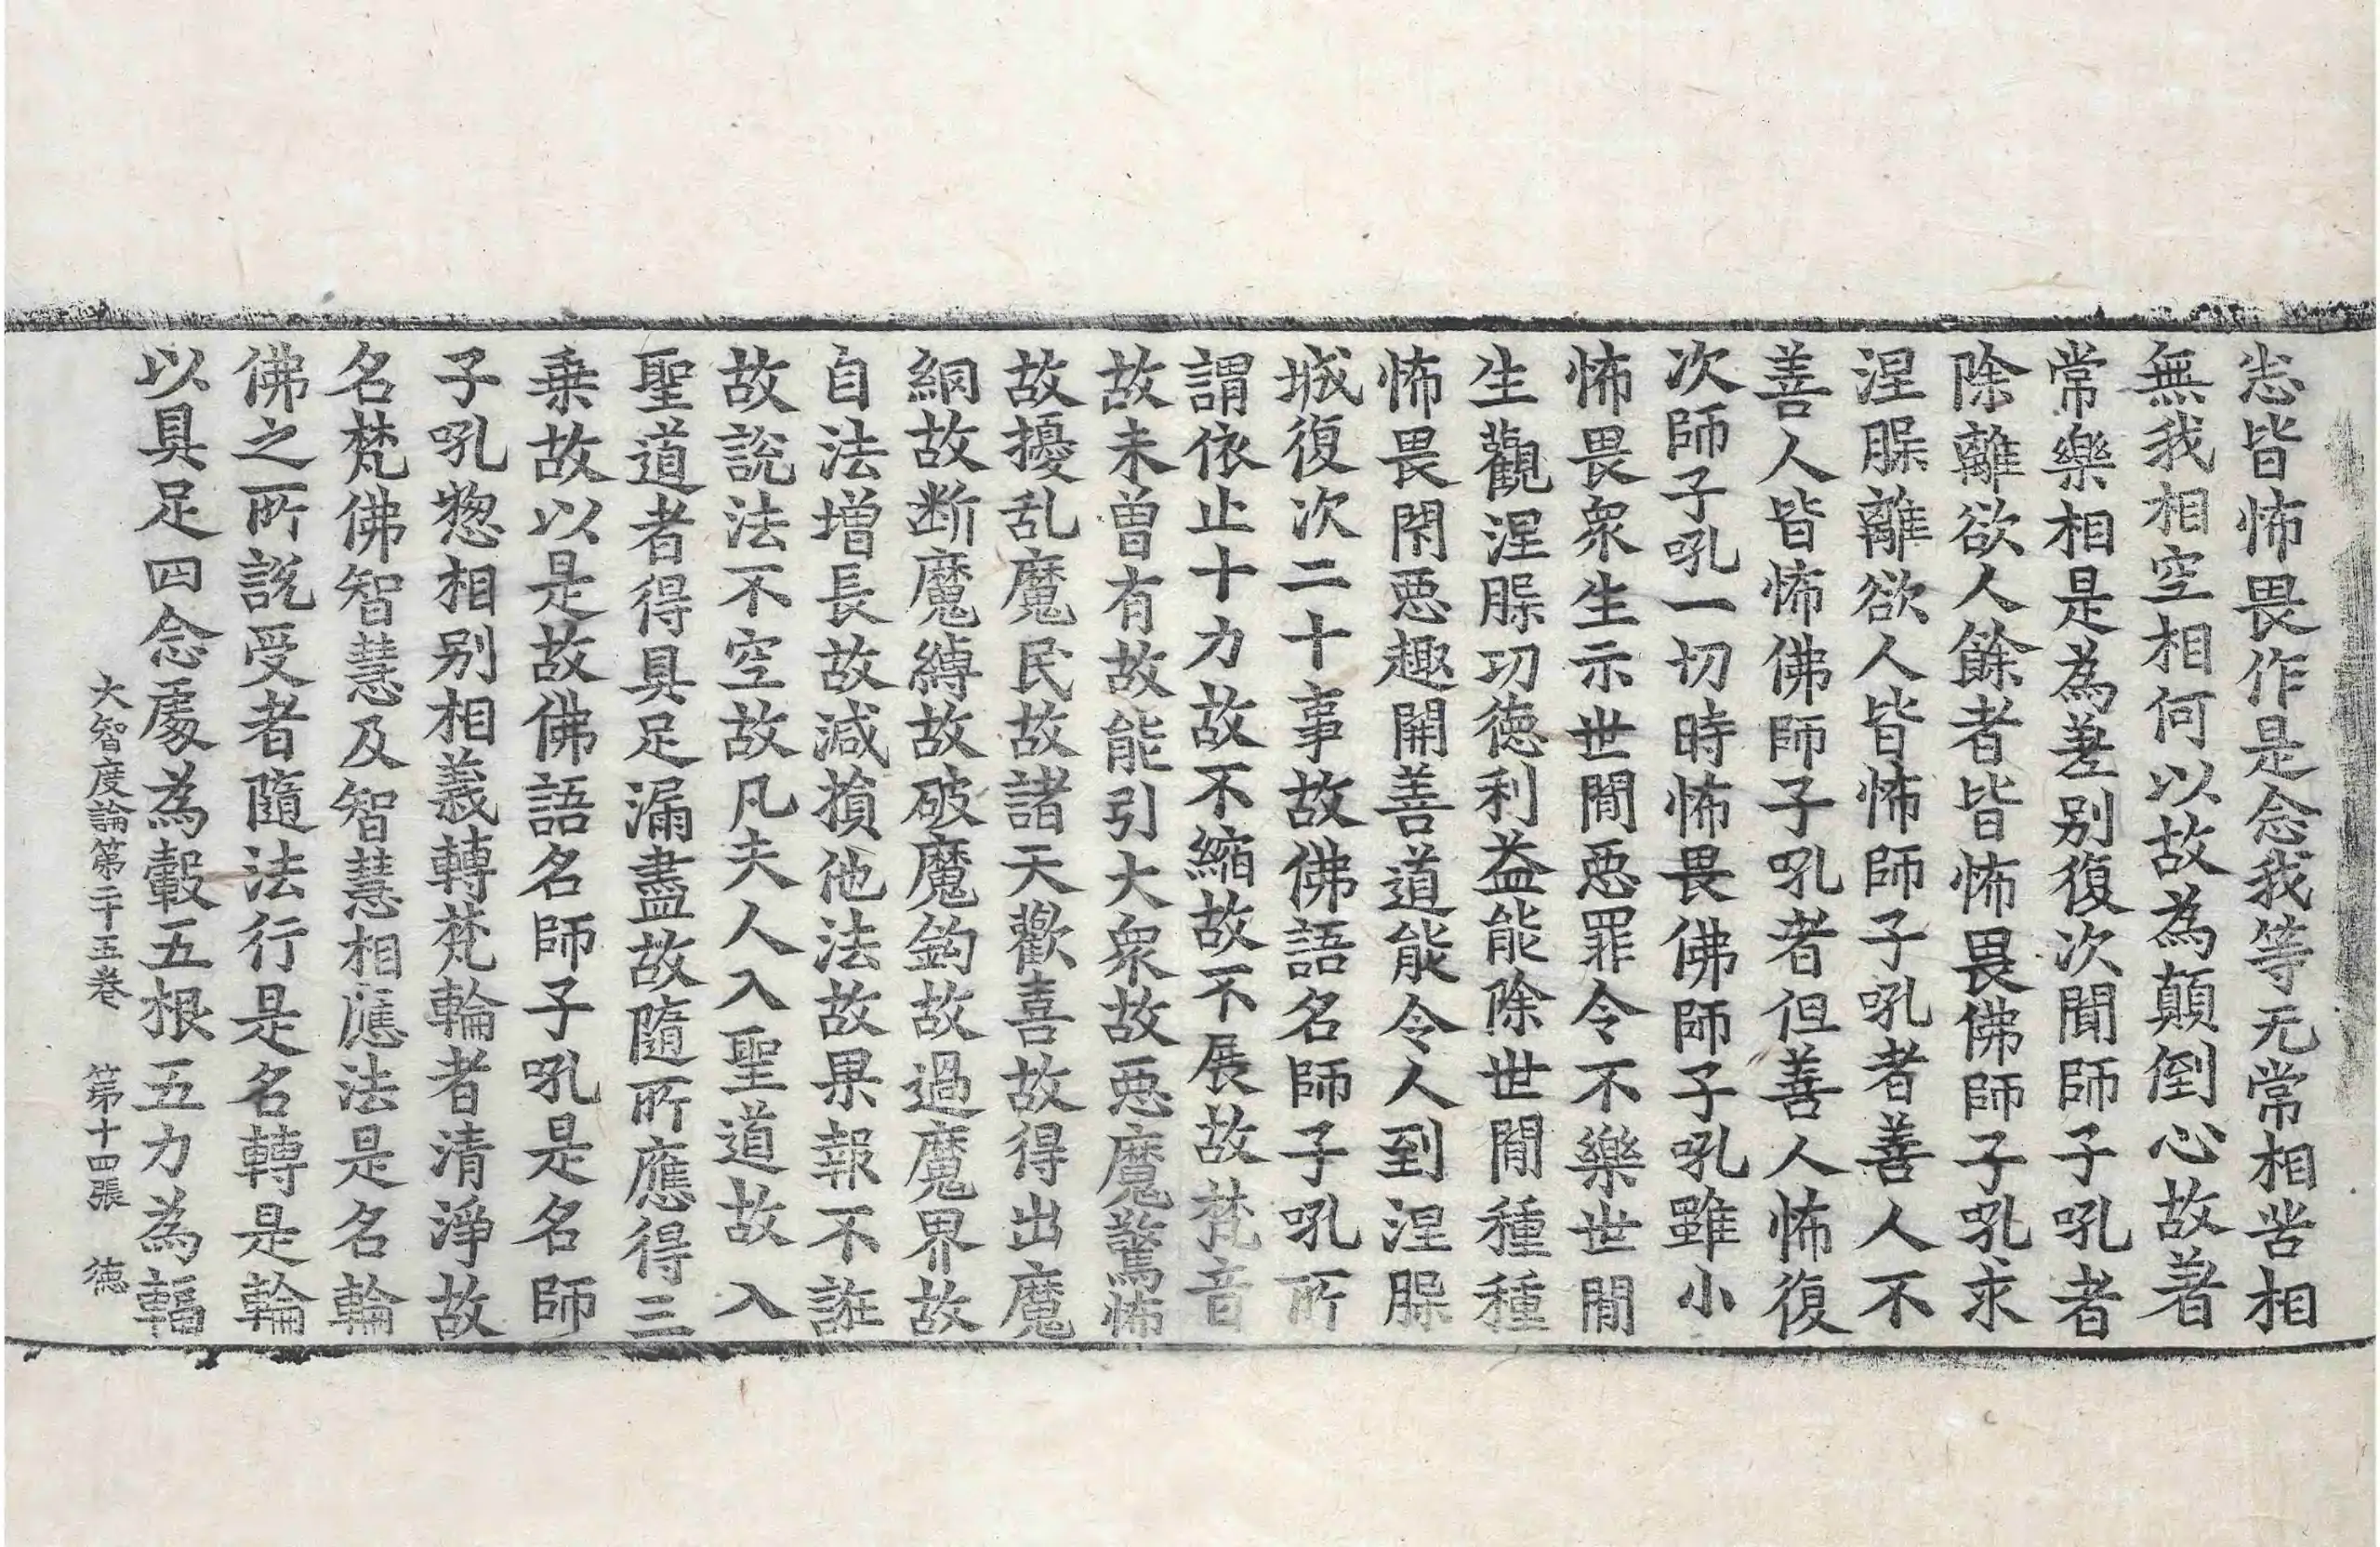 㤅皆怖畏作是念我等无常相苦相
無我相空相何以故為顛倒心故著
常樂相是為差别復次聞師子吼者
除離欲人餘者皆怖畏佛師子吼求
涅𦙾離欲人皆怖師子吼者善人不
善人皆怖佛師子吼者但善人怖復
次師子吼一切時怖畏佛師子吼雖小
怖畏衆生示世閒惡罪令不樂世閒
生觀涅𦙾功徳利益能除世閒種種
怖畏閇惡趣開善道能令人到涅𦙾
城復次二十事故佛語名師子吼所
謂依止十力故不縮故不展故梵音
故未曾有故能引大衆故惡魔驚怖
故擾乱魔民故諸天歡喜故得出魔
網故断魔縛故破魔鈎故過魔界故
自法増長故減損他法故果報不誑
故說法不空故凡夫人入聖道故入
聖道者得具足漏盡故隨所應得三
乗故以是故佛語名師子吼是名師
子吼惣相别相義轉梵輪者清淨故
名梵佛智慧及智慧相應法是名輪
佛之所說受者隨法行是名轉是輪
以具足四念處為轂五根五力為輻
大智度論第二十五卷 第十四張 徳